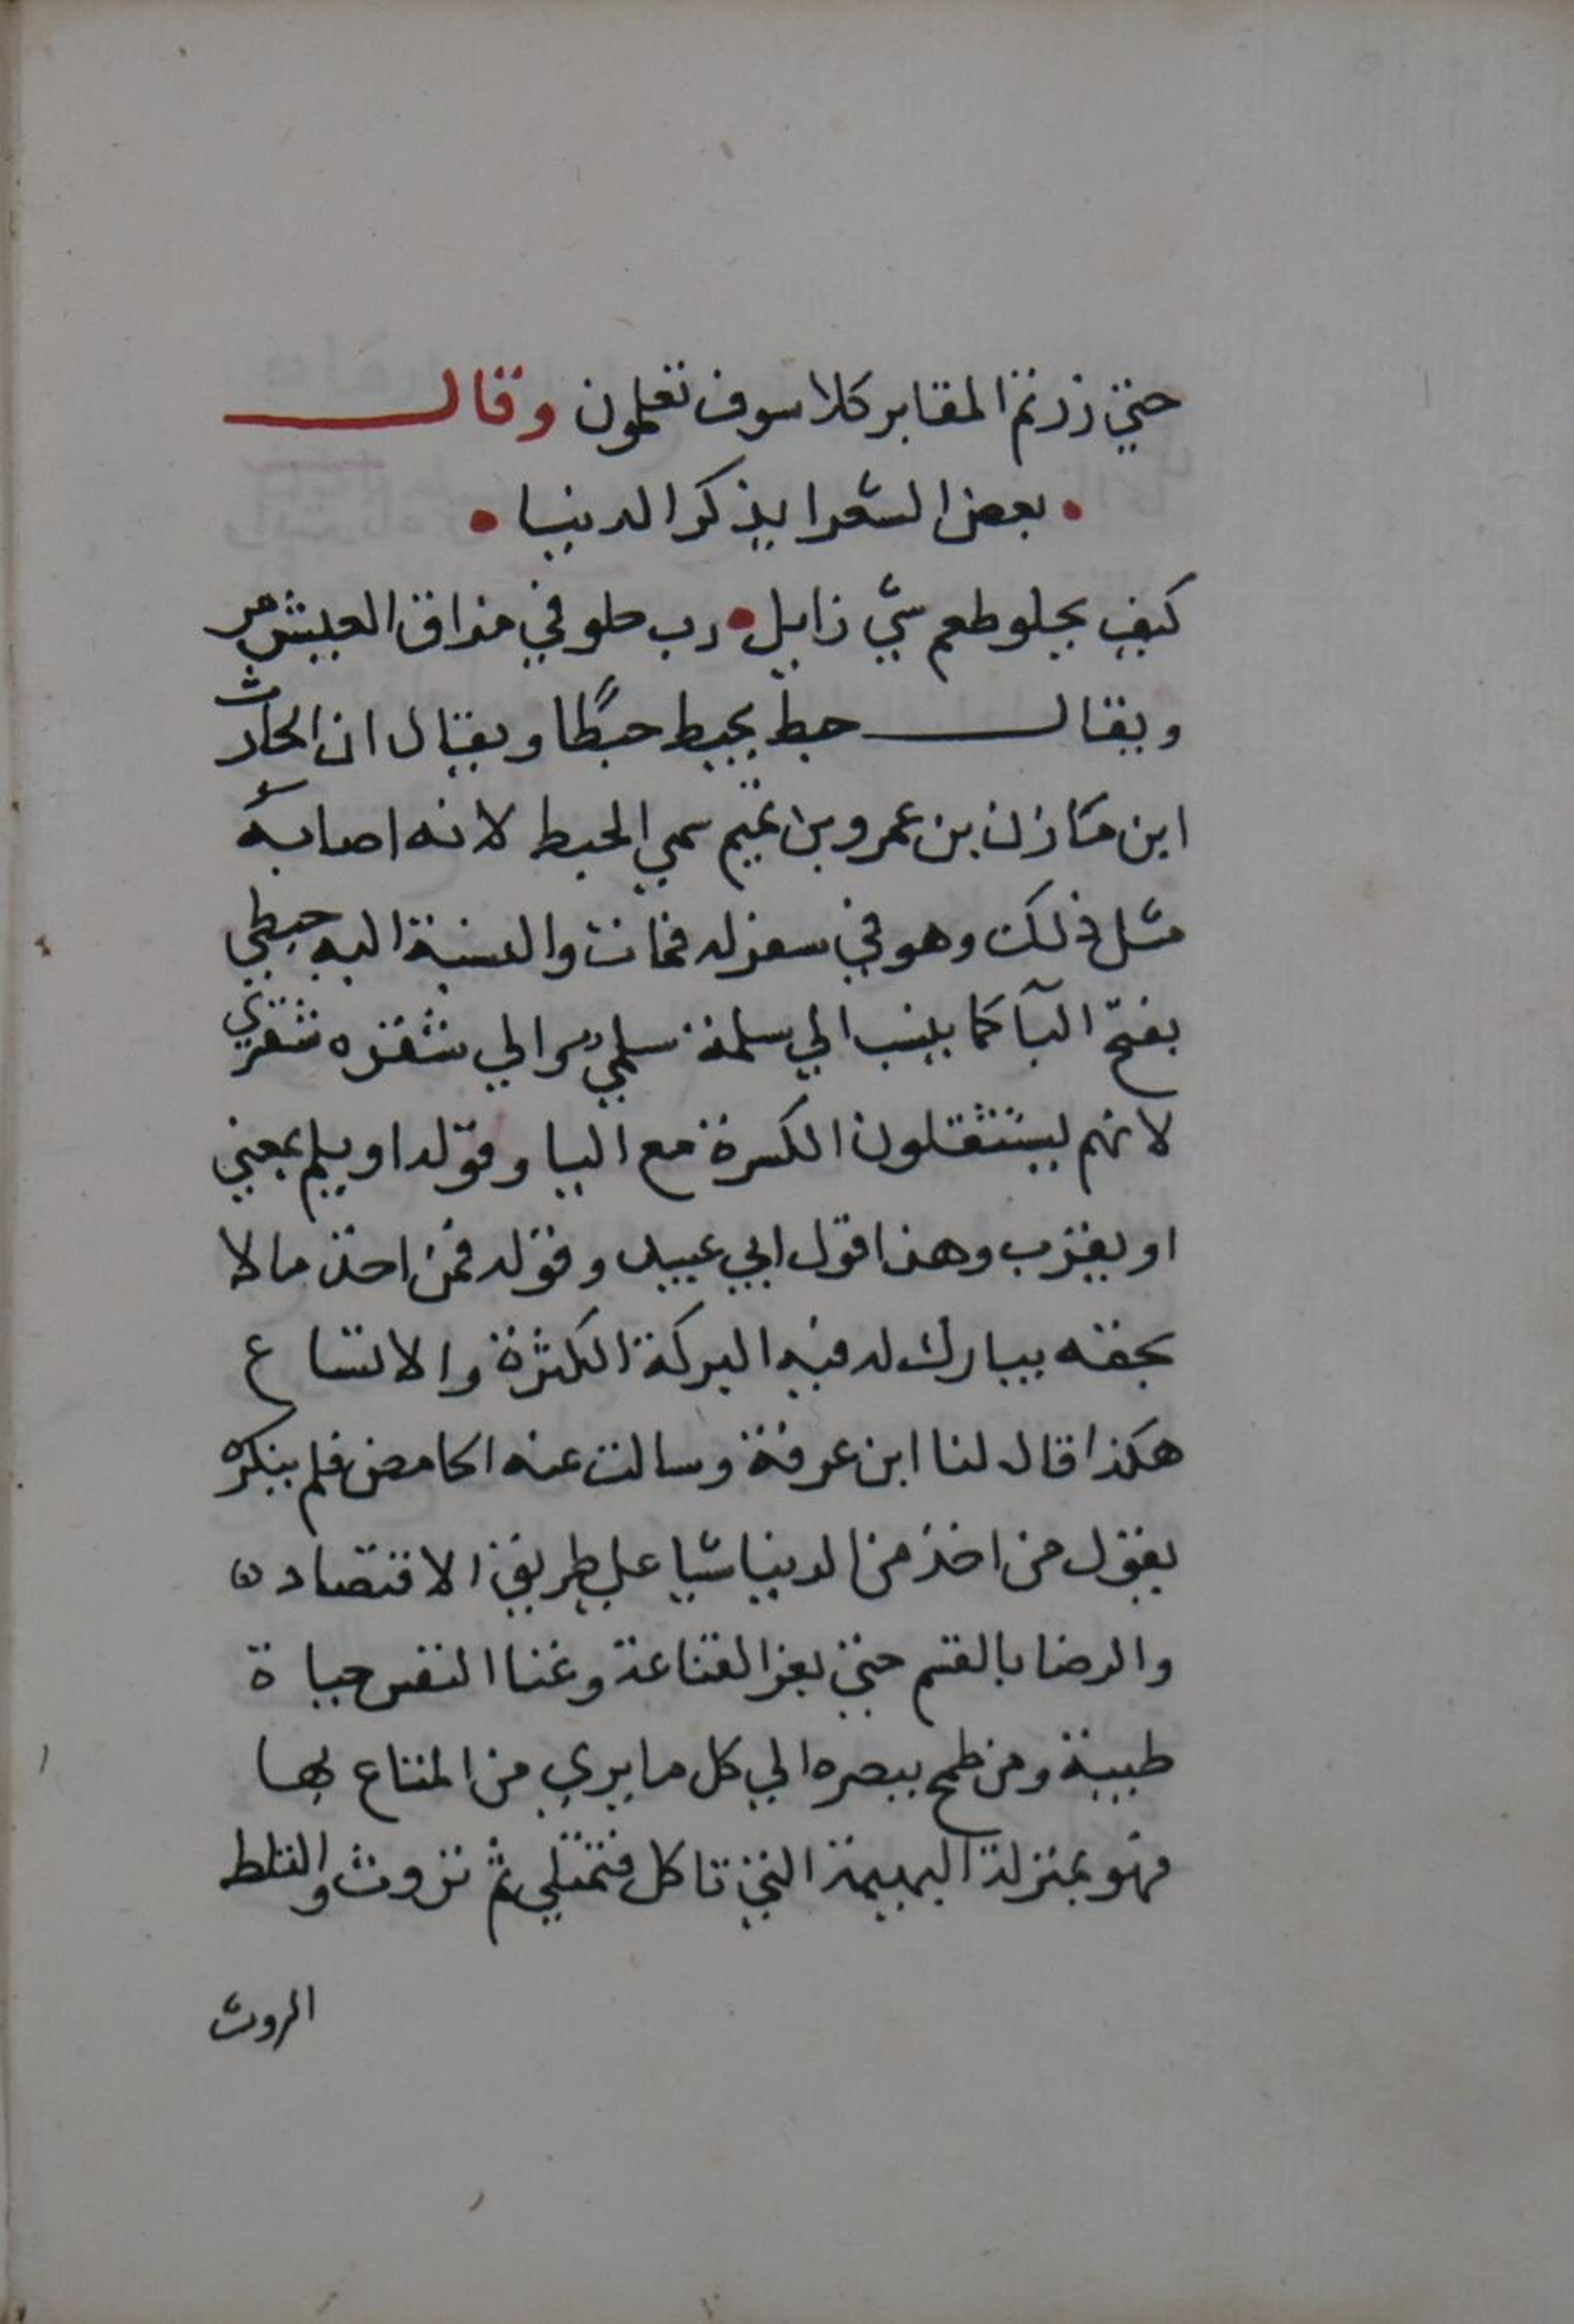 حتي زرتم المقابر كلا سوف تعلمون وقال
• بعض الشعرا يذكر الدنيا •
كيف يحلو طعم شي زايل • رب حلو في مذاق العيش مر
ويقال حبط يحبط حبطًا ويقال ان الحارث
ابن مازن بن عمرو بن تميم سمي الحبط لانه اصابه
مثل ذلك وهو في سفر له فمات والنسبة اليه حبطي
بفتح البآ كما ينسب الي سلمة سلمي والي شقره شقري
لانهم يستثقلون الكسرة مع اليا وقوله او يلم بمعني
او يقرب وهذا قول ابي عبيد وقوله فمن اخذ مالا
بحقه يبارك له فيه البركة الكثرة والاتساع
هكذا قال لنا ابن عرفة وسالت عنه الحامض فلم ينكره
يقول من اخذ من الدنيا شيا علي طريق الاقتصاد
والرضا بالقسم حتي بعز القناعة وغنا النفس حياة
طيبة ومن طمح ببصره الي كل ما يري من المتاع بها
فهو بمنزلة البهيمة التي تاكل فتمتلي ثم تروث والثلط
الروث